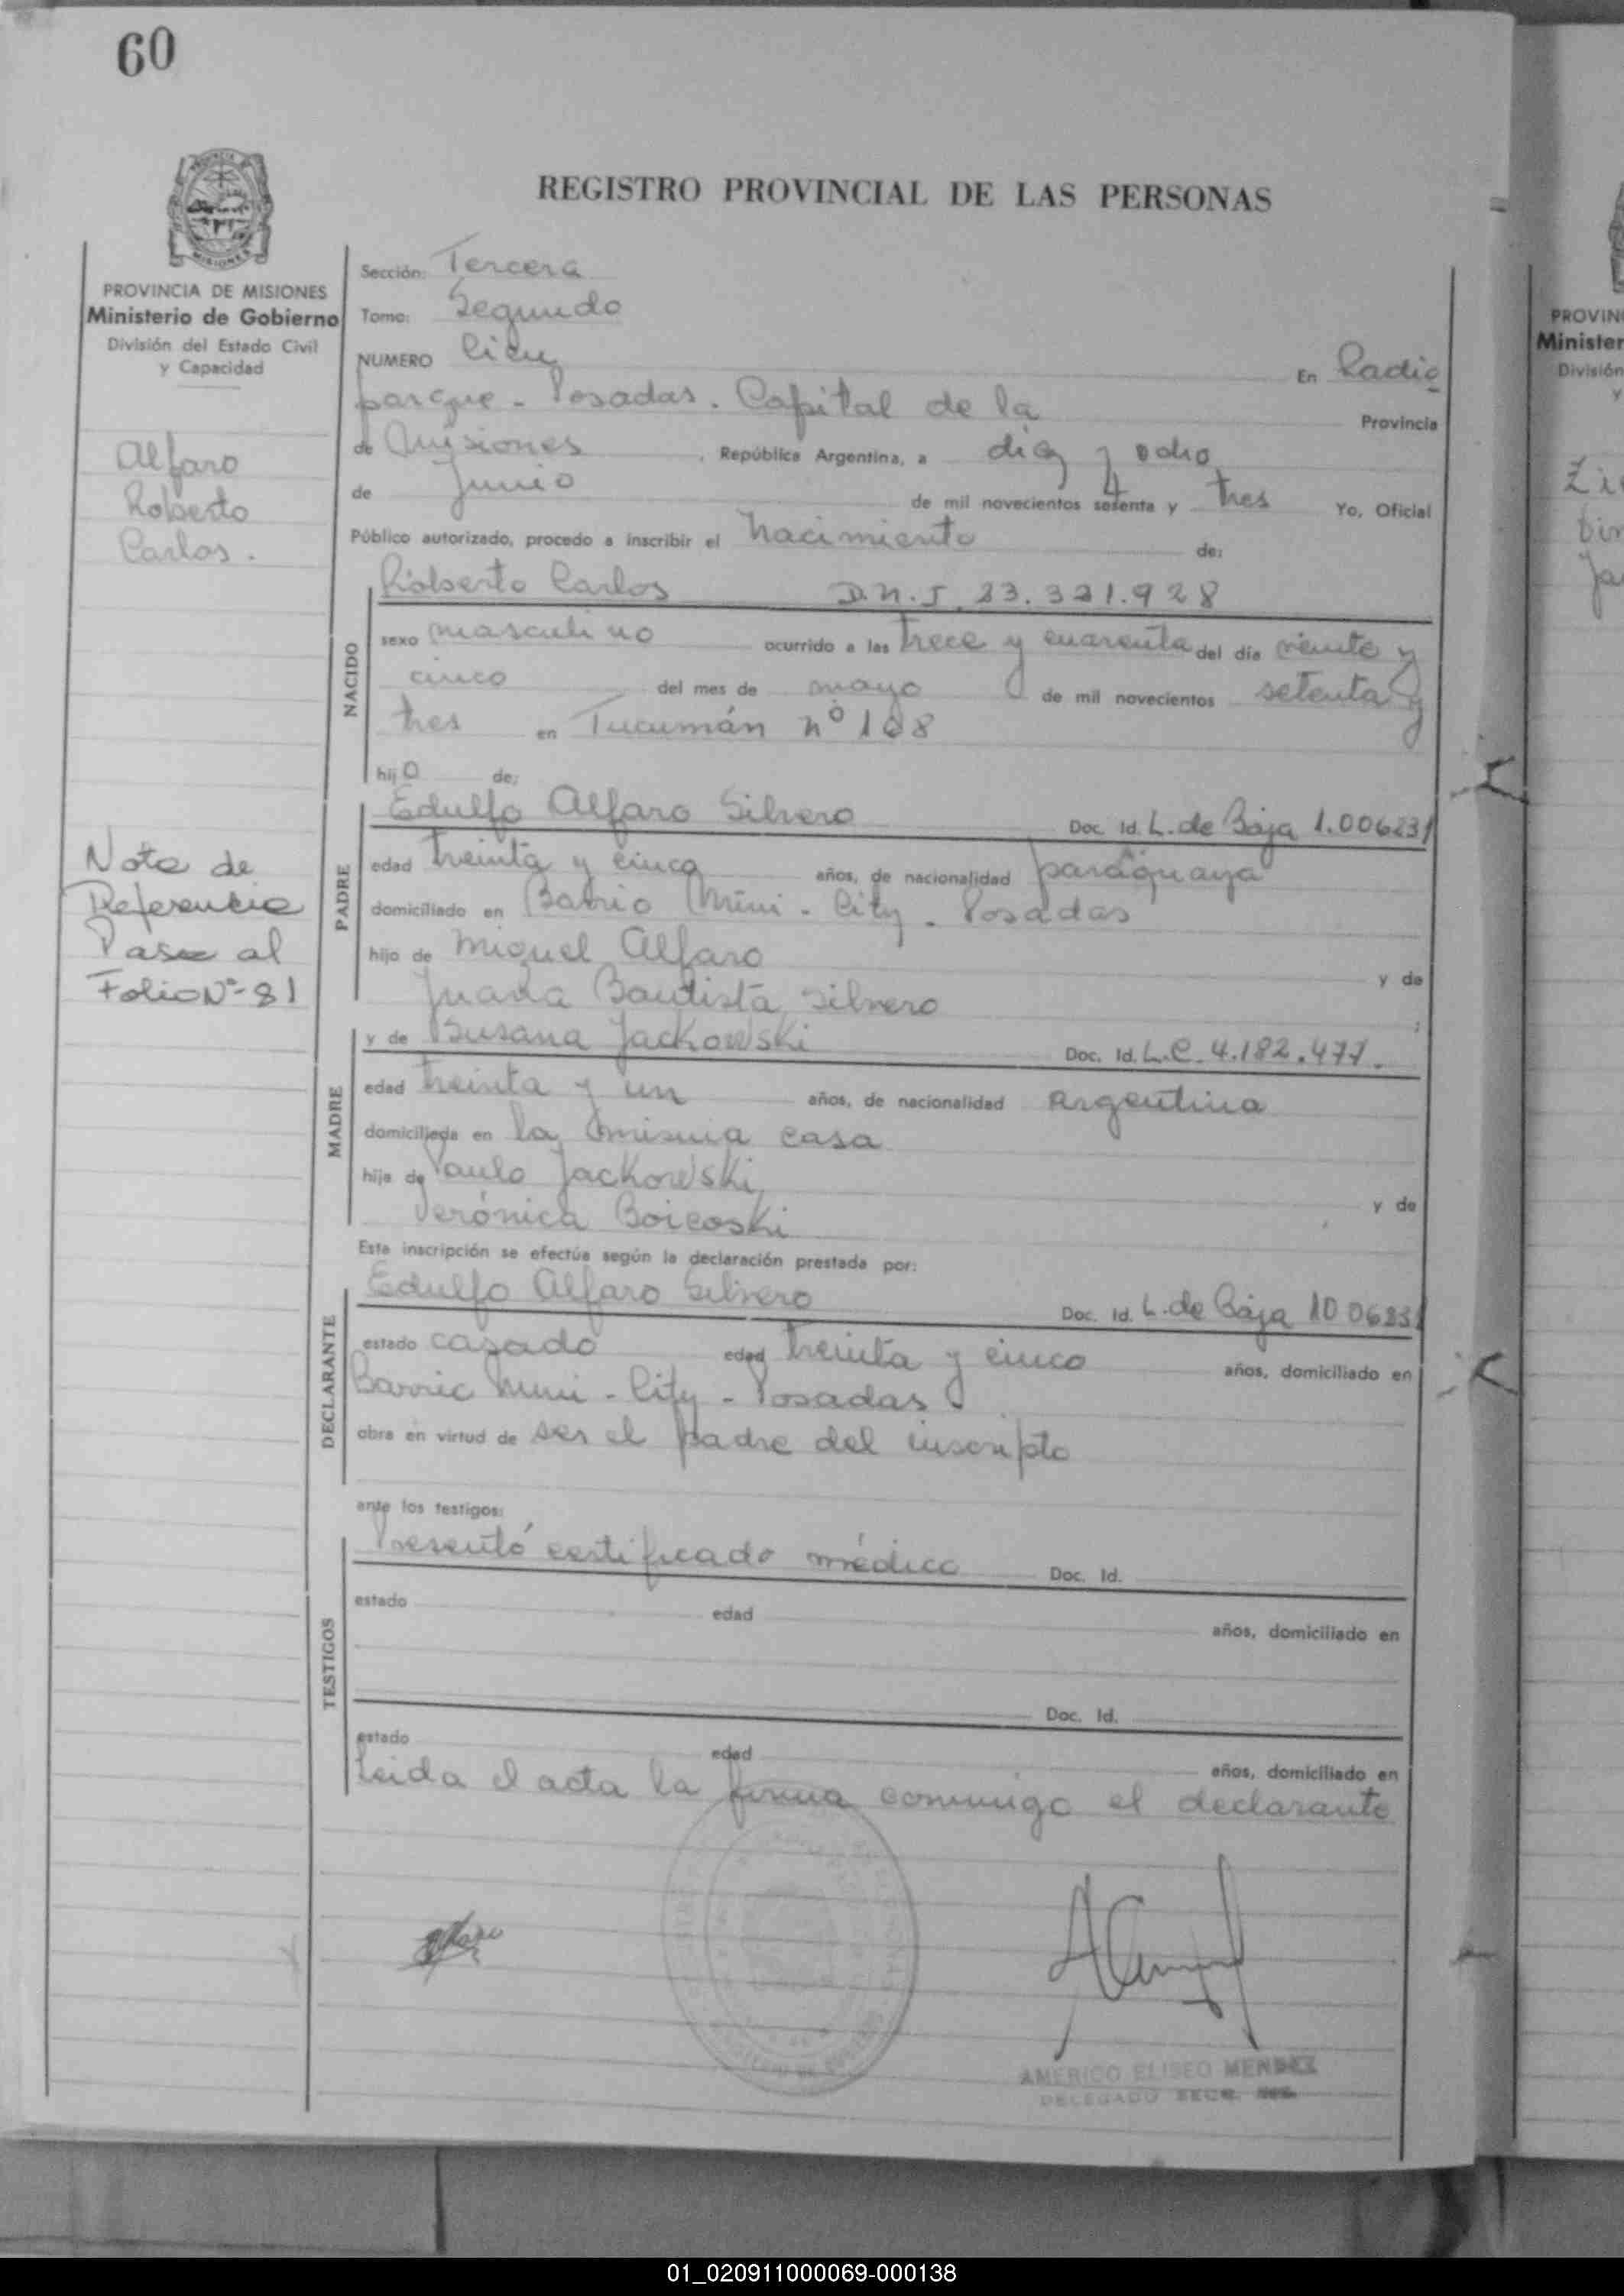 60
REGISTRO PROVINCIAL DE LAS PERSONAS
MISIONES
PROVINCIA DE MISIONES
Ministerio de Gobierno
División del Estado Civil
y Capacidad
Alfaro
Roberto
Carlos.
Nota de
Referencia
Pase al
Folio Nº 81
Sección: Tercera
Tomo: Segundo
NUMERO Cien En Radio
parque - Posadas. Capital de la Provincia
de Misiones, República Argentina, a diez y ocho
de Junio de mil novecientos setenta y tres Yo, Oficial
Público autorizado, procedo a inscribir el nacimiento de:
NACIDO
Roberto Carlos D.N.I. 23.321.928
sexo masculino ocurrido a las trece y cuarenta del día veinte y
cinco del mes de mayo de mil novecientos setenta y
tres en Tucumán nº 168
hijo de:
PADRE
Edulfo Alfaro Silvero Doc. Id. L. de Baja 1.006231
edad treinta y cinco años, de nacionalidad paraguaya
domiciliado en Barrio Mini - City - Posadas
hijo de Miguel Alfaro y de
Juana Bautista Silvero ;
MADRE
y de Susana Jackowski Doc. Id. L.C. 4.182.477.
edad treinta y un años, de nacionalidad argentina
domiciliada en la misma casa
hija de Paulo Jackowski, y de
Verónica Boicoski
Esta inscripción se efectúa según la declaración prestada por:
DECLARANTE
Edulfo Alfaro Silvero Doc. Id. L. de Baja 1006231
estado casado edad treinta y cinco años, domiciliado en
Barrio Mini - City - Posadas
obra en virtud de ser el padre del inscripto
ante los testigos:
TESTIGOS
Presentó certificado médico Doc. Id.
estado edad años, domiciliado en
Doc. Id.
estado edad años, domiciliado en
Leida el acta la firma conmigo el declarante
AMERICO ELISEO MENDEZ
DELEGADO SECC.
PROVIN
Minister
División
y
01_020911000069-000138